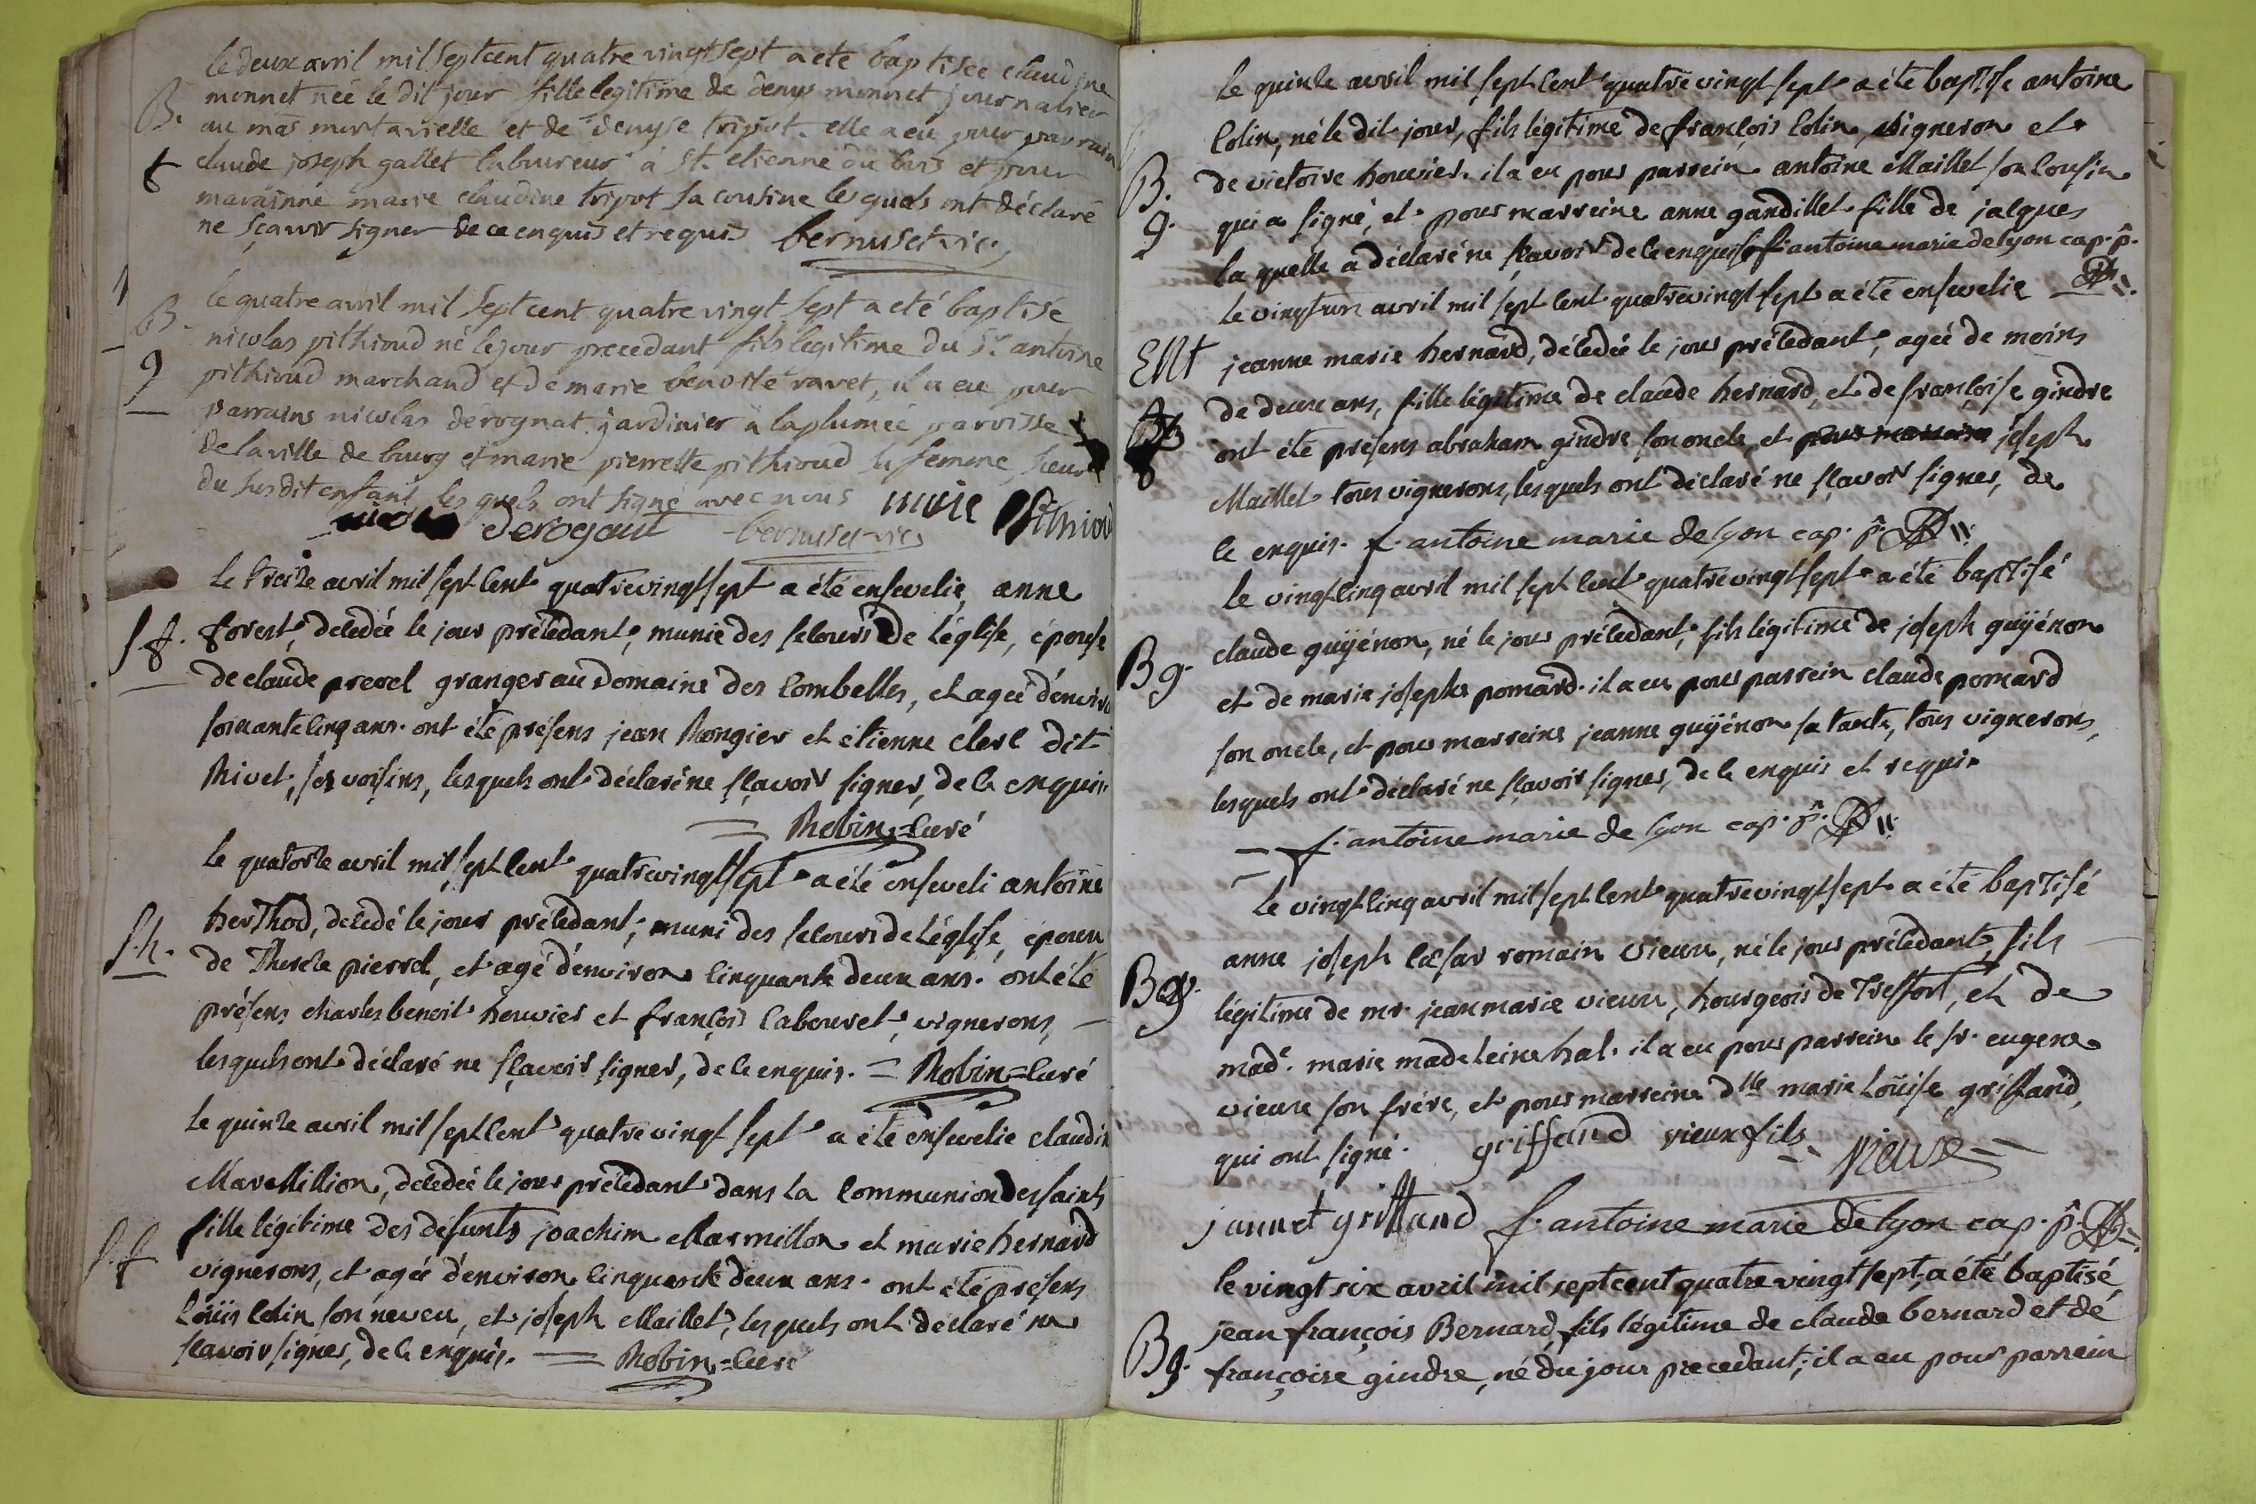 le deux avril mil septcent quatre vingt sept a eté baptisée claudine
B. monnet née le dit jour fille legitime de denys monnet journalier
au mas mortarielle et de denyse tripot. elle a eu pour parrain
f claude joseph gallet laboureur a St. etienne du bois et pour
maraine marie claudine tripot sa cousine lesquels ont déclaré
ne sçavoir signer de ce enquis et requis bernuset vic
B. le quatre avril mil sept cent quatre vingt sept a eté baptisé
nicolas pithioud né le jour precedant fils legitime du Sr. antoine
g pithioud marchand et de marie benoite ravet, il a eu pour
parrains nicolas derognat jardinier a laplumée parroisse
de la ville de bourg et marie pierrette pithioud sa femme soeur
du susdit enfant lesquels ont signé avec nous marie Pithioud
derognat bernuset vic
le treize avril mil sept cent quatrevingt sept a été ensevelie anne
S. f. forest, decedée le jour précédant, munie des secours de l'église, épouse
de claude prevel granger au domaine des Combelles, et agée d'environ
soixante cinq ans. ont été présens jean Mongier et étienne clerc dit
Rivet, ses voisins, lesquels ont déclaré ne sçavoir signer, de ce enquis
Robin = curé
le quatorze avril mil sept cent quatrevingt sept a été enseveli antoine
S. h. berthod, decedé le jour précédant, muni des secours de l'église, epoux
de Therese pierrel, et agé d'environ cinquante deux ans. ont été
présens charles benoit bouvier et françois labouret, vignerons,
lesquels ont déclaré ne sçavoir signer, de ce enquis. = Robin = curé
le quinze avril mil sept cent quatrevingt sept a été ensevelie claudine
Marmillion, decedée le jour précédant dans la Communion des saints
S. f fille légitime des défunts joachim Marmillon et marie bernard
vignerons, et agée d'environ cinquante deux ans. ont été présens
Louis Colin son neveu, et joseph Maillet, lesquels ont declaré ne
scavoir signer, de ce enquis. = Robin = curé
le quinze avril mil sept cent quatrevingt sept a été baptisé antoine
Colin, né le dit jour, fils légitime de françois Colin, vigneron et
B. de victoire bouvier. il a eu pour parrein antoine Maillet son cousin
g. qui a signé, et pour marreine anne gandillet fille de jacques
la quelle a déclaré ne sçavoir de ce enquise f. antoine marie de lyon cap. p.
le vingt un avril mil sept cent quatrevingt sept a été ensevelie
ENt jeanne marie bernard, décedée le jour précedant, agée de moins
de deux ans, fille légitime de claude bernard, et de françoise gindre
ont été présens abraham gindre son oncle, et joseph
Maillet tous vignerons, lesquels ont déclaré ne sçavoir signer, de
ce enquis. f. antoine marie de lyon cap. p.
le vingt cinq avril mil sept cent quatrevingt sept a été baptisé
claude guÿénon, né le jour précedant, fils légitime de joseph guÿénon
B g. et de marie josephe pomard. il a eu pour parrein claude pomard
son oncle, et pour marreine jeanne guÿénon sa tante, tous vignerons,
lesquels ont déclaré ne sçavoir signer, de ce enquis et requis
f. antoine marie de lyon cap. p.
Le vingt cinq avril mil sept cent quatrevingt sept a été baptisé
anne joseph Cæsar romain vieux, né le jour précedant, fils
B g. légitime de mr. jean marie vieux, bourgeois de Treffort, et de
made. marie madeleine hal. il a eu pour parrein le sr. eugene
vieux son frére, et pour marreine dlle marie Loüise griffand,
qui ont signé. griffand vieux fils vieux
jannet griffand f. antoine marie de lyon cap. p.
le vingt six avril mil septcent quatre vingt sept, a été baptisé,
jean françois Bernard, fils légitime de claude bernard et de
B g. françoise gindre, né du jour precedant, il a eu pour parrein